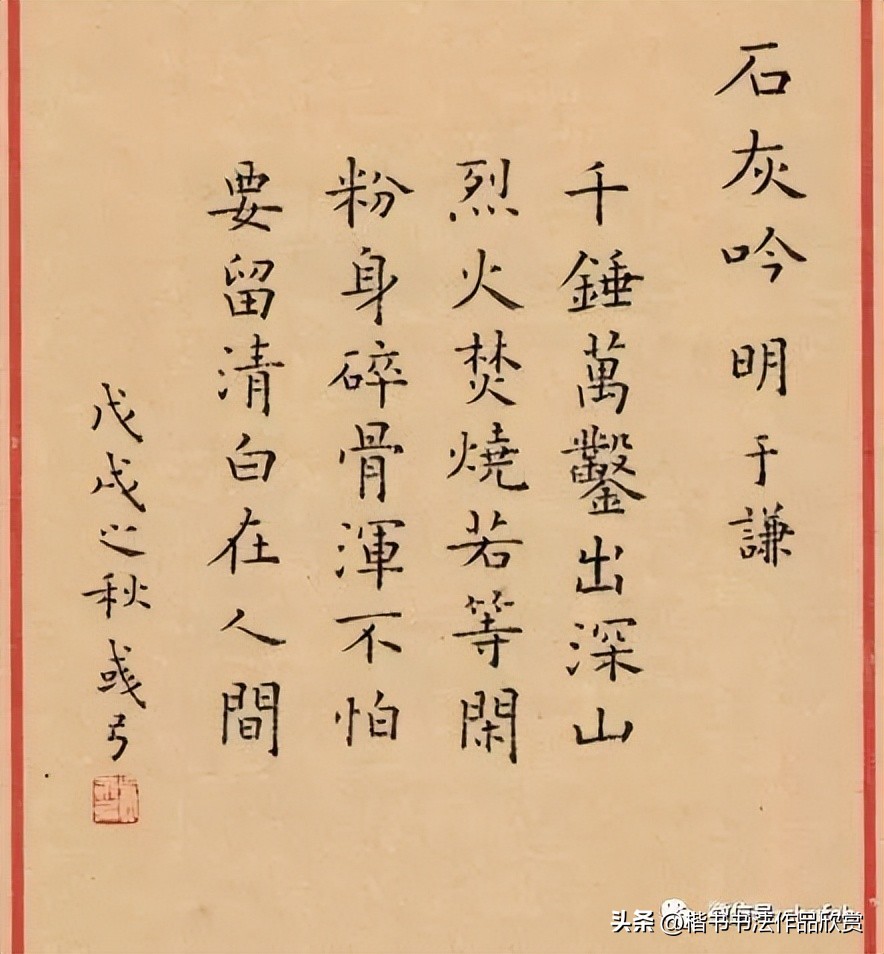 石灰吟 明 于謙
千錘萬鑿出深山
烈火焚燒若等閑
粉身碎骨渾不怕
要留清白在人間
戊戌之秋彧弓
头条 @楷书书法作品欣赏